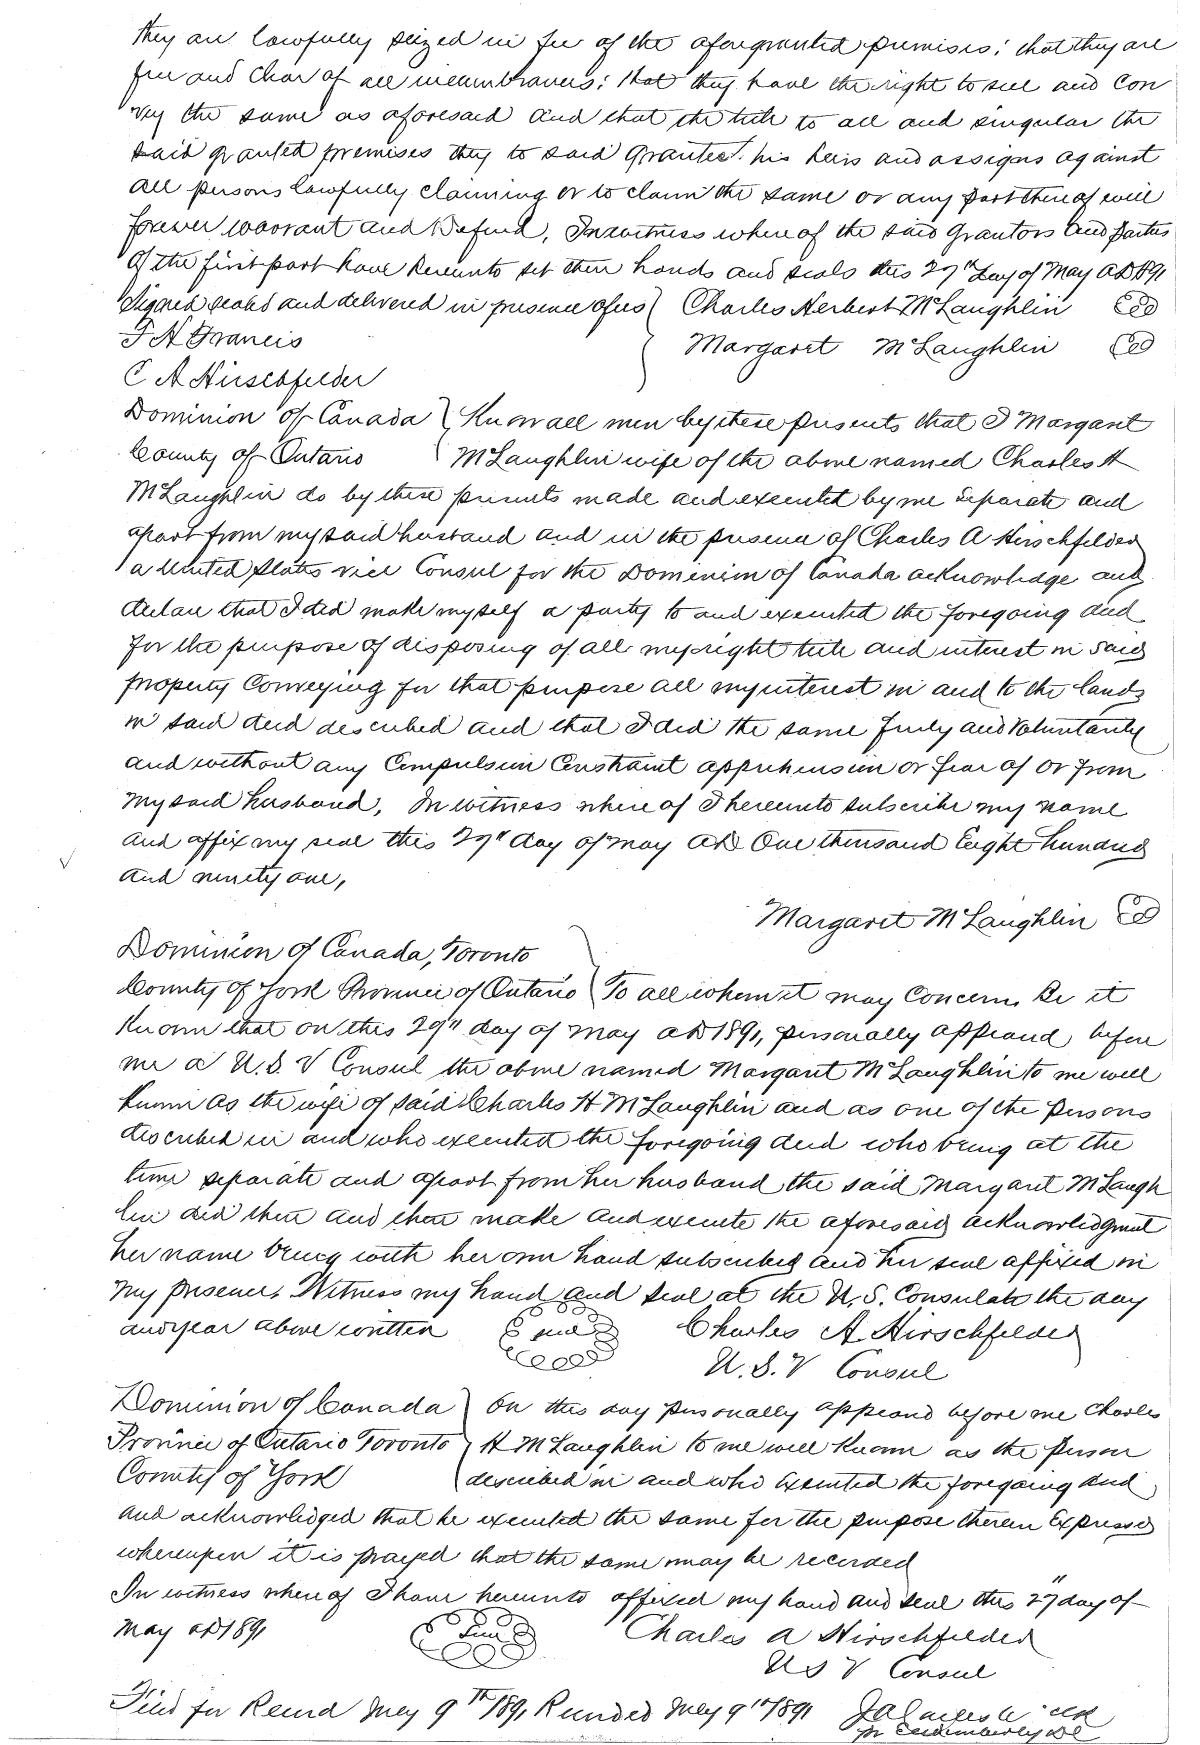 they are lawfully seized in fee of the aforegranted premises; that they are
free and clear of all incumbrances; that they have the right to sell and con
vey the same as aforesaid and that the title to all and singular the
said granted premises they to said Grantee his heirs and assigns against
all persons lawfully claiming or to claim the same or any part thereof will
forever warrant and Defend, In witness where of the said Grantors and parties
of the first part have hereunto set their hands and seals this 27th Day of May AD 1891
Signed sealed and delivered in presence of us Charles Herbert McLaughlin
F H Francis
Margaret McLaughlin
C A Hirschfelder
Dominion of Canada Know all men by these presents that I Margaret
County of Ontario McLaughlin wife of the above named Charles H
McLaughlin do by these presents made and executed by me separate and
apart from my said husband and in the presence of Charles A Hirschfelder
a United States vice Consul for the Dominion of Canada acknowledge and
declare that I did make myself a party to and executed the foregoing deed
for the purpose of disposing of all my right title and interest in said
property conveying for that purpose all my interest in and to the lands
in said deed described and that I did the same freely and voluntarily
and without any Compulsion Constraint apprehension or fear of or from
my said husband, In witness where of I hereunto subscribe my name
and affix my seal this 27" day of May AD One thousand Eight hundred
and ninety one,
Margaret McLaughlin
Dominion of Canada, Toronto
County of York Province of Ontario To all whom it may Concern, Be it
Known that on this 29" day of May AD 1891, personally appeared before
me a U.S V Consul the above named Margaret McLaughlin to me well
known as the wife of said Charles H McLaughlin and as one of the persons
described in and who executed the foregoing deed who being at the
time separate and apart from her husband the said Margaret McLaugh
lin did then and there make and execute the aforesaid acknowledgment
her name being with her own hand subscribed and her seal affixed in
my presence. Witness my hand and seal at the U.S. Consulate the day
and year above written Seal Charles A Hirschfelder
U.S.V Consul
Dominion of Canada On this day personally appeared before me Charles
Province of Ontario Toronto H McLaughlin to me well known as the person
County of York described in and who executed the foregoing deed
and acknowledged that he executed the same for the purpose therein Expressed
whereupon it is prayed that the same may be recorded
In witness where of I have hereunto affixed my hand and seal this 27" day of
May AD 1891 Seal Charles A Hirschfelder
U S V Consul
Filed for Record July 9th 1891, Recorded July 9th 1891